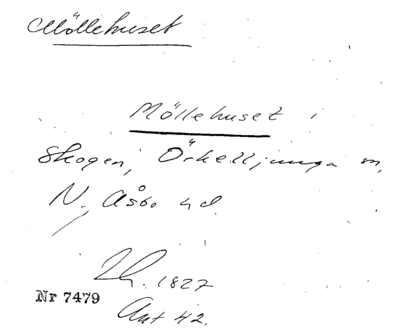 Möllehuset
Möllehuset i
Skogen, Örkelljunga sn,
N. Åsbo hd.
1827
Nr 7479
Ant 42.